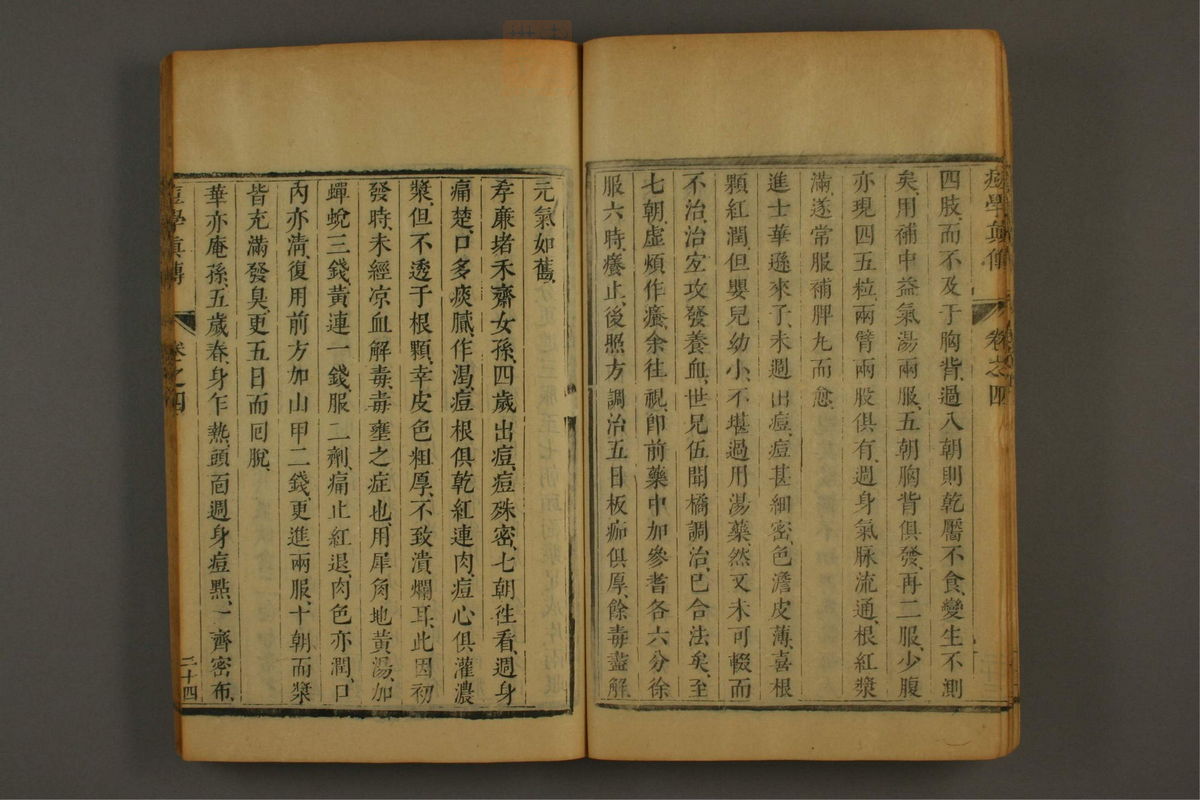 痘學真傳 卷之四
四肢、而不及于胸背、過八朝則乾靨不食、變生不測
矣、用補中益氣湯兩服、五朝胸背俱發、再二服、少腹
亦現四五粒、兩臂兩股俱有、週身氣脉流通、根紅漿
滿、遂常服補脾丸而愈、
進士華遜來子、未週出痘、痘甚細密、色澹皮薄、喜根
顆紅潤、但嬰兒幼小、不堪過用湯藥、然又未可輟而
不治、治宜攻發養血、世兄伍聞橋調治、已合法矣、至
七朝、虛煩作癢、余往視、卽前藥中加參耆各六分、徐
服六時、癢止、後照方調治五日、板痂俱厚、餘毒盡解、
元氣如舊、
孝廉堵禾齋女孫、四歲出痘、痘殊密、七朝徃看、週身
痛楚、口多痰膩、作渴、痘根俱乾紅連肉、痘心俱灌濃
漿、但不透于根顆、幸皮色粗厚、不致潰爛耳、此因初
發時、未經凉血解毒、毒壅之症也、用犀角地黃湯、加
蟬蛻三錢、黃連一錢、服二劑、痛止紅退、肉色亦潤、口
內亦淸、復用前方加山甲二錢、更進兩服、十朝而漿
皆充滿發臭、更五日而囘脫、
華亦庵孫、五歲春、身乍熱、頭面週身痘點、一齊密布、
痘學眞傳 卷之四
三十四